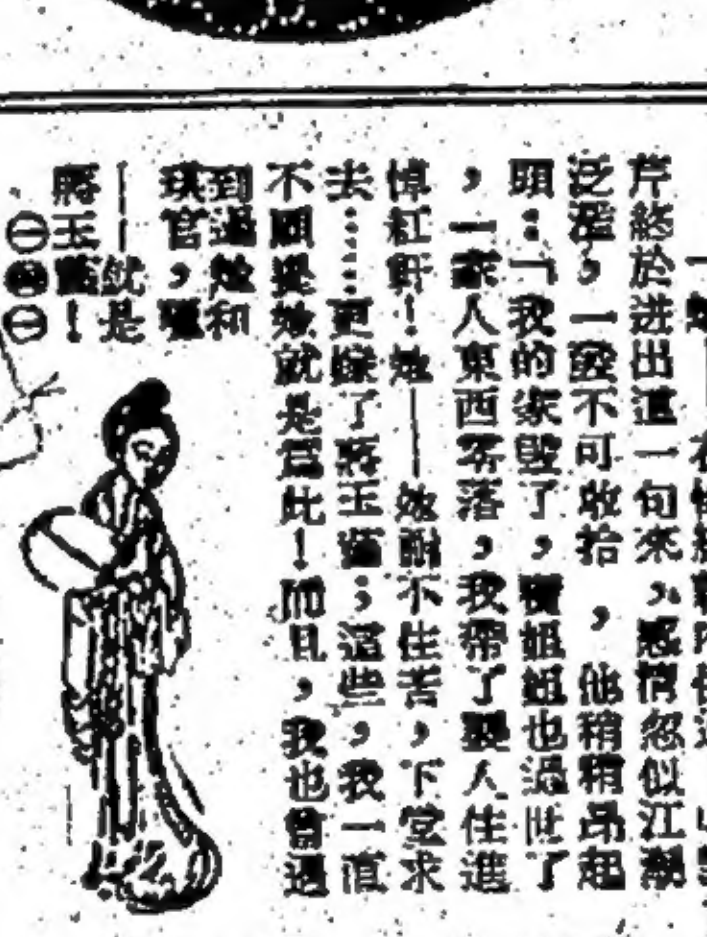 芹終於迸出這一句來，感情忽似江潮
泛濫，一發不可收拾，他稍稍昂起
頭：「我的家毀了，寶姐姐也過世了
，一家人東西零落，我帶了襲人住進
悼紅軒！她——她耐不住苦，下堂求
去……更嫁了蔣玉菡；這些，我一直
不願提她就是為此！而且，我也曾遇
到過她和
琪官，
——就是
蔣玉菡！